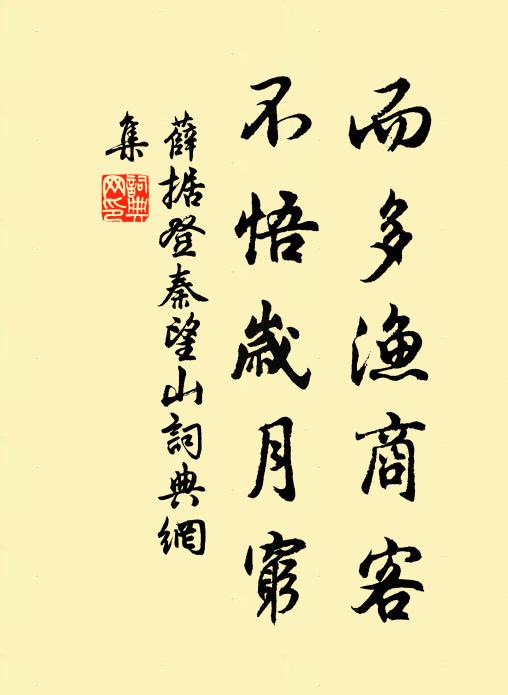 而多渔商客
不悟歲月窮
薛据登秦望山詞典網
集
詞典
网印